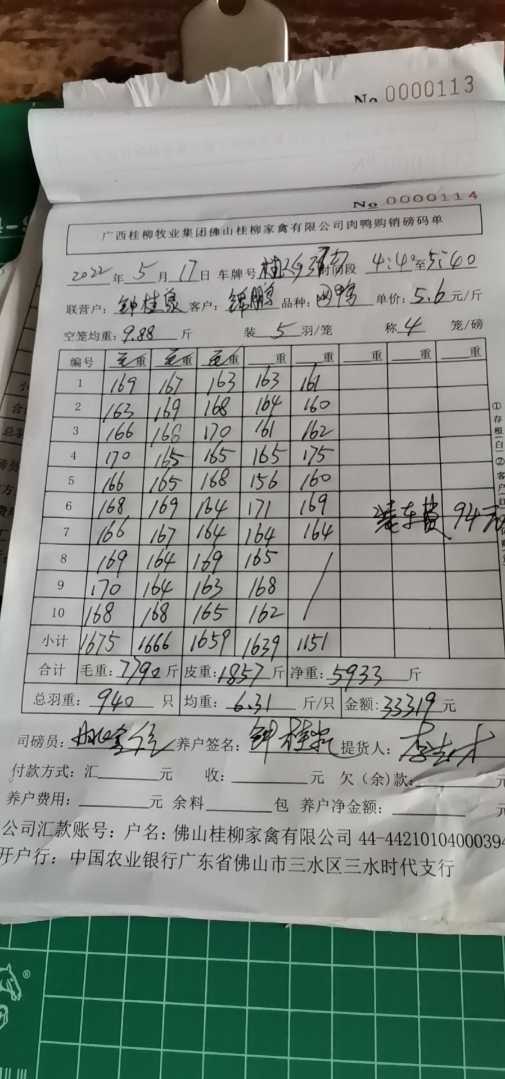 No 0000113
No 0000114
广西桂柳牧业集团佛山桂柳家禽有限公司肉鸭购销磅码单
2022年5月17日 车牌号 时间段 4:40至5:40
联营户: 钟桂泉 客户: 鹏 品种: 单价: 5.6元/斤
空笼均重: 9.88斤 装5羽/笼 称4笼/磅
编号 毛重 毛重 毛重 重 重 重 重 重
1 169 167 163 163 161
2 163 169 168 164 160
3 166 166 170 161 162
4 170 165 165 165 175
5 166 165 168 156 160
6 168 169 164 171 169 装车费 94元
7 166 167 164 164 164
8 169 164 169 165 /
9 170 164 163 168
10 168 168 165 162
小计 1675 1666 1659 1639 1151
合计 毛重: 7790斤 皮重: 1857斤 净重: 5933斤
总羽重: 940只 均重: 6.31斤/只 金额: 33319元
司磅员: 养户签名: 钟桂泉 提货人:
付款方式: 汇 元 收: 元 欠(余)款: 元
养户费用: 元 余料 包 养户净金额: 元
公司汇款账号: 户名: 佛山桂柳家禽有限公司 44-44210104000394
开户行: 中国农业银行广东省佛山市三水区三水时代支行
①存根(白)②客户(